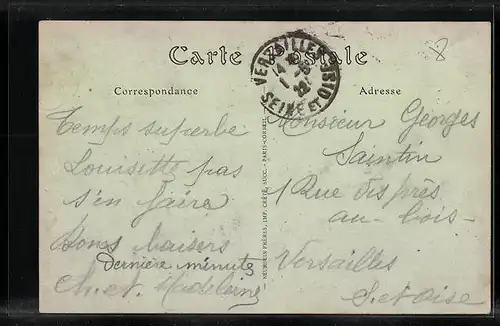 Carte Postale
Correspondance
Adresse
VERSAILLES
SEINE ET OISE
Temps superbe
Louisette pas
s'en faire
Bons baisers
dernière minute
Ch. et Madeleine
NEURDEIN FRÈRES, IMP. CRÉTÉ, SUCC. - PARIS-CORBEIL
Monsieur Georges
Saintin
1 Rue des près
au-bois-
Versailles
S. et Oise